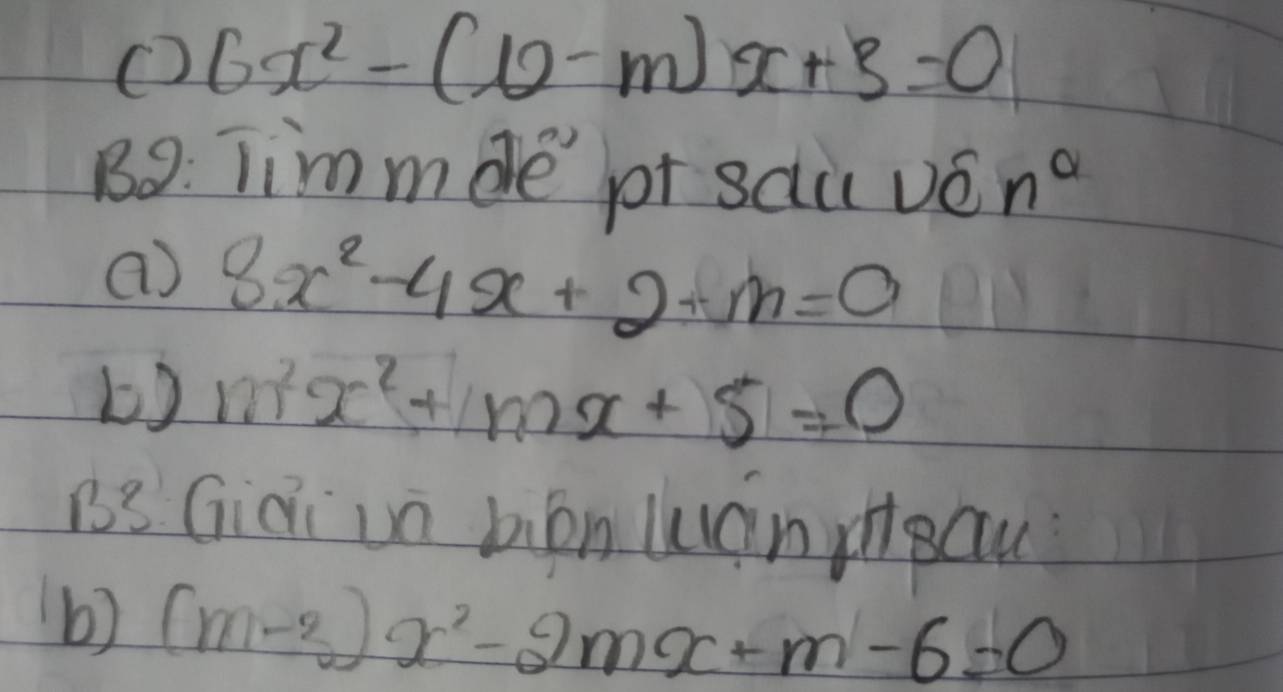 c) 6x² - (10 - m)x + 3 = 0
B2: Tìm m để pt sau vô nº
a) 3x² - 4x + 2 + m = 0
b) m²x² + mx + 5 = 0
B3: Giải và biện luận pt sau:
b) (m - 3)x² - 2mx + m - 6 = 0